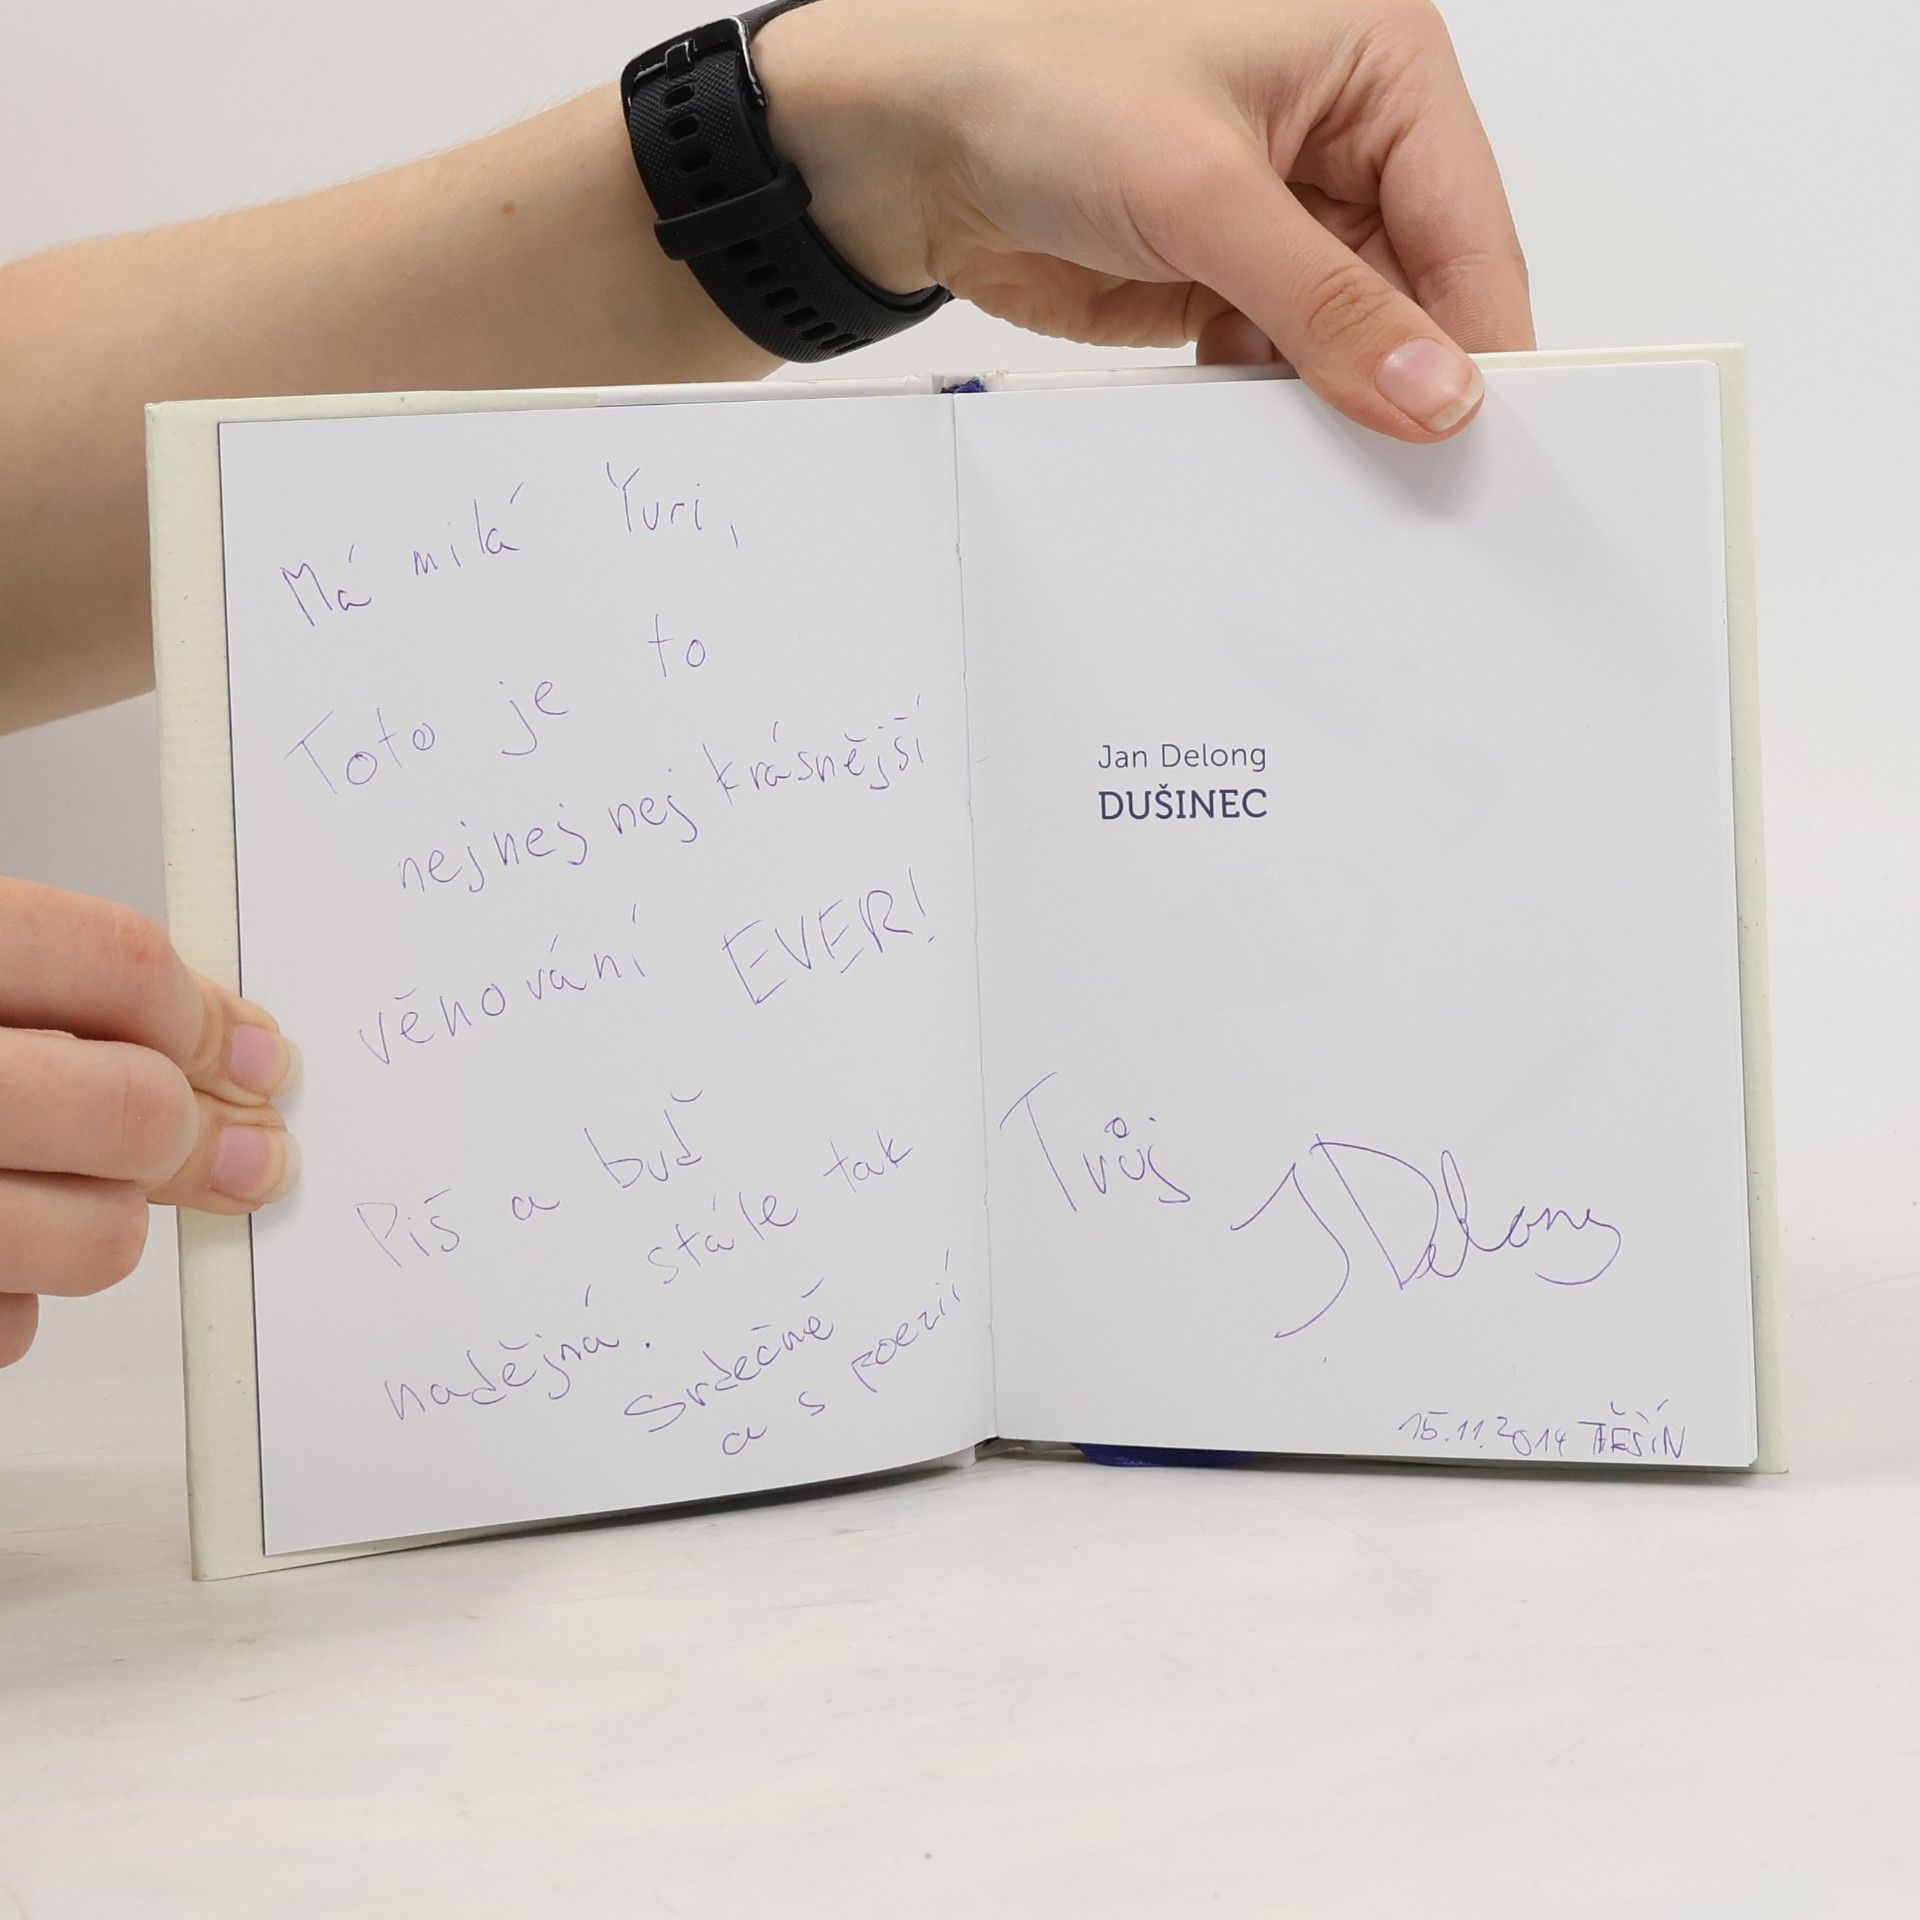 Má milá Yuri,
Toto je to
nejnejnejkrásnější
věnování EVER!
Piš a buď
stále tak
nadějná.
Srdečně
a s poezií
Jan Delong
DUŠINEC
Tvůj
JDelong
15.11.2014 TĚŠÍN